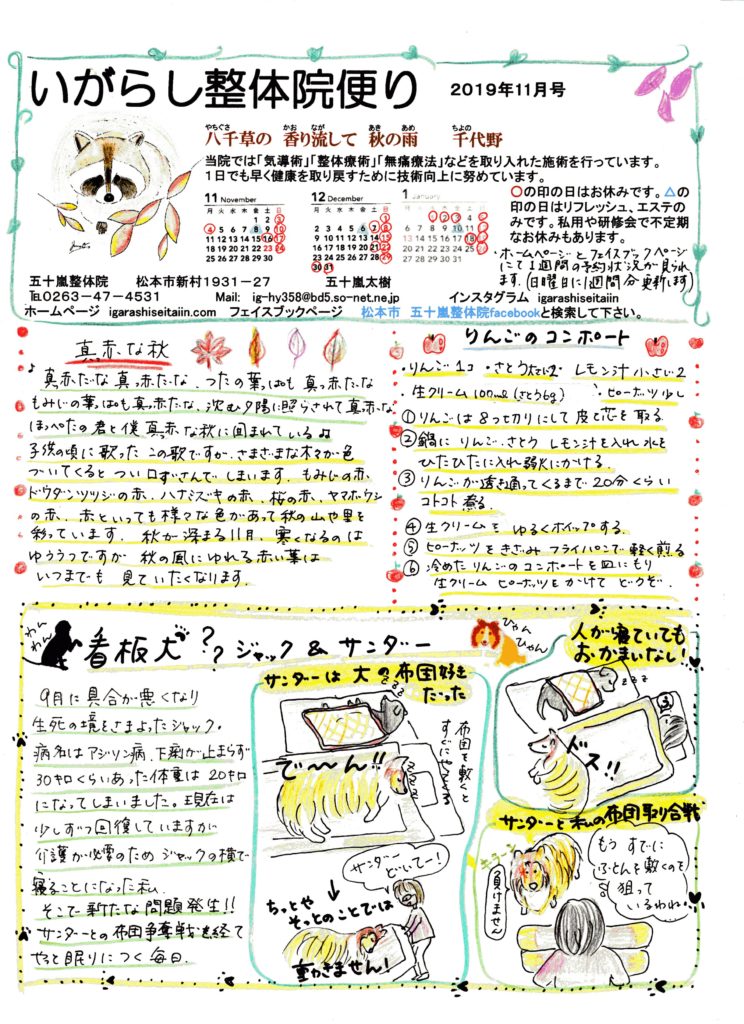 いがらし整体院便り 2019年11月号
八千草の 香り流して 秋の雨 千代野
やちぐさ かお なが あき あめ ちよの
当院では「気導術」「整体療術」「無痛療法」などを取り入れた施術を行っています。
1日でも早く健康を取り戻すために技術向上に努めています。
11 November
月 火 水 木 金 土 日
1 2 3
4 5 6 7 8 9 10
11 12 13 14 15 16 17
18 19 20 21 22 23 24
25 26 27 28 29 30
12 December
月 火 水 木 金 土 日
1
2 3 4 5 6 7 8
9 10 11 12 13 14 15
16 17 18 19 20 21 22
23 24 25 26 27 28 29
30 31
1 January
月 火 水 木 金 土 日
1 2 3 4 5
6 7 8 9 10 11 12
13 14 15 16 17 18 19
20 21 22 23 24 25 26
27 28 29 30 31
○の印の日はお休みです。△の
印の日はリフレッシュ、エステの
みです。私用や研修会で不定期
なお休みもあります。
・ホームページとフェイスブックページ
にて1週間の予約状況が見られ
ます。(日曜日に1週間分更新します)
五十嵐整体院 松本市新村1931-27 五十嵐太樹
℡0263-47-4531 Mail: ig-hy358@bd5.so-net.ne.jp インスタグラム igarashiseitaiin
ホームページ igarashiseitaiin.com フェイスブックページ 松本市 五十嵐整体院facebookと検索して下さい。
真赤な秋
♪真赤だな 真っ赤だな つたの葉っぱも 真っ赤だな
もみじの葉っぱも真っ赤だな 沈む夕陽に照らされて真っ赤な
ほっぺたの君と僕 真っ赤な秋に囲まれている♪
子供の頃に歌った この歌ですが、さまざまな木々が色
づいてくると つい口ずさんでしまいます。もみじの赤、
ドウダンツツジの赤、ハナミズキの赤、桜の赤、ヤマボウシ
の赤、赤といっても様々な色があって秋の山や里を
彩っています。秋が深まる11月、寒くなるのは
ゆううつですが 秋の風にゆれる赤い葉は
いつまでも 見ていたくなります。
りんごのコンポート
・りんご1コ ・さとう大さじ2 レモン汁 小さじ2
生クリーム100ml(さとう6g) ・ピーナッツ少し
①りんごは8つ切りにして皮と芯を取る
②鍋に りんご、さとう レモン汁を入れ水を
ひたひたに入れ弱火にかける。
③りんごが透き通ってくるまで20分くらい
コトコト煮る。
④生クリームを ゆるくホイップする。
⑤ピーナッツをきざみフライパンで軽く煎る
⑥冷めたりんごのコンポートを皿にもり
生クリーム ピーナッツをかけて どうぞ。
わんわん
看板犬?? ジャック & サンダー
ひゃんひゃん
9月に具合が悪くなり
生死の境をさまよったジャック。
病名はアジソン病、下痢が止まらず
30キロくらいあった体重は20キロ
になってしまいました。現在は
少しずつ回復していますが
介護が必要のため ジャックの横で
寝ることになった私。
そこで新たな問題発生!!
サンダーとの布団争奪戦を経て
やっと眠りにつく毎日。
サンダーは大の布団好き
だった
zzz
布団を敷くと
すぐに
で〜〜ん!!
サンダー
どいてー!
ちっとや
そっとのことでは
動かきません!
人が寝ていても
おかまいなし!
zzz
ドス!!
サンダーと私の布団取り合戦
キラーン
負けません
もう すでに
ふとんを敷くのを
狙って
いるわね。